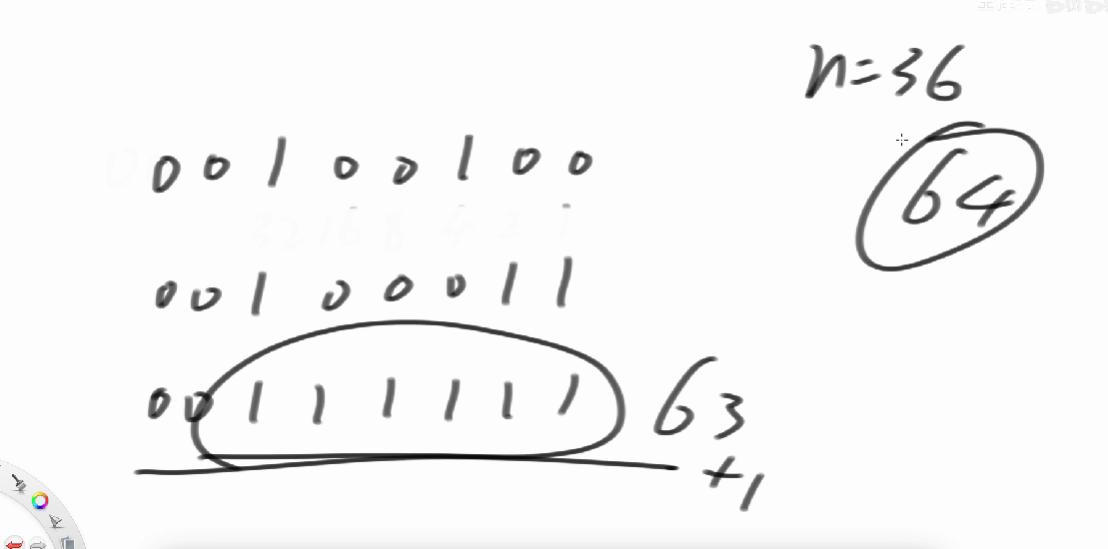 n=36
64
00100100
32 16 8 4 2 1
00100011
00111111 63
+1